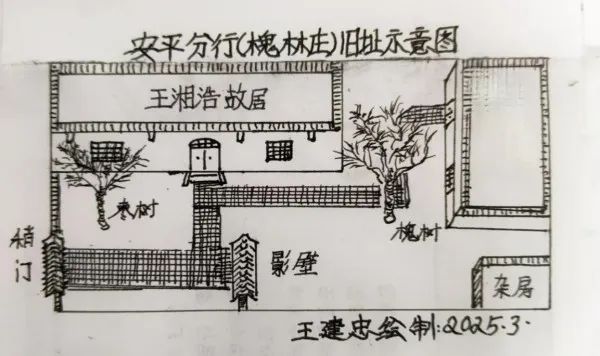 安平分行(槐林庄)旧址示意图
王湘浩故居
枣树
槐树
稍门
影壁
杂房
王建忠绘制:2025.3.